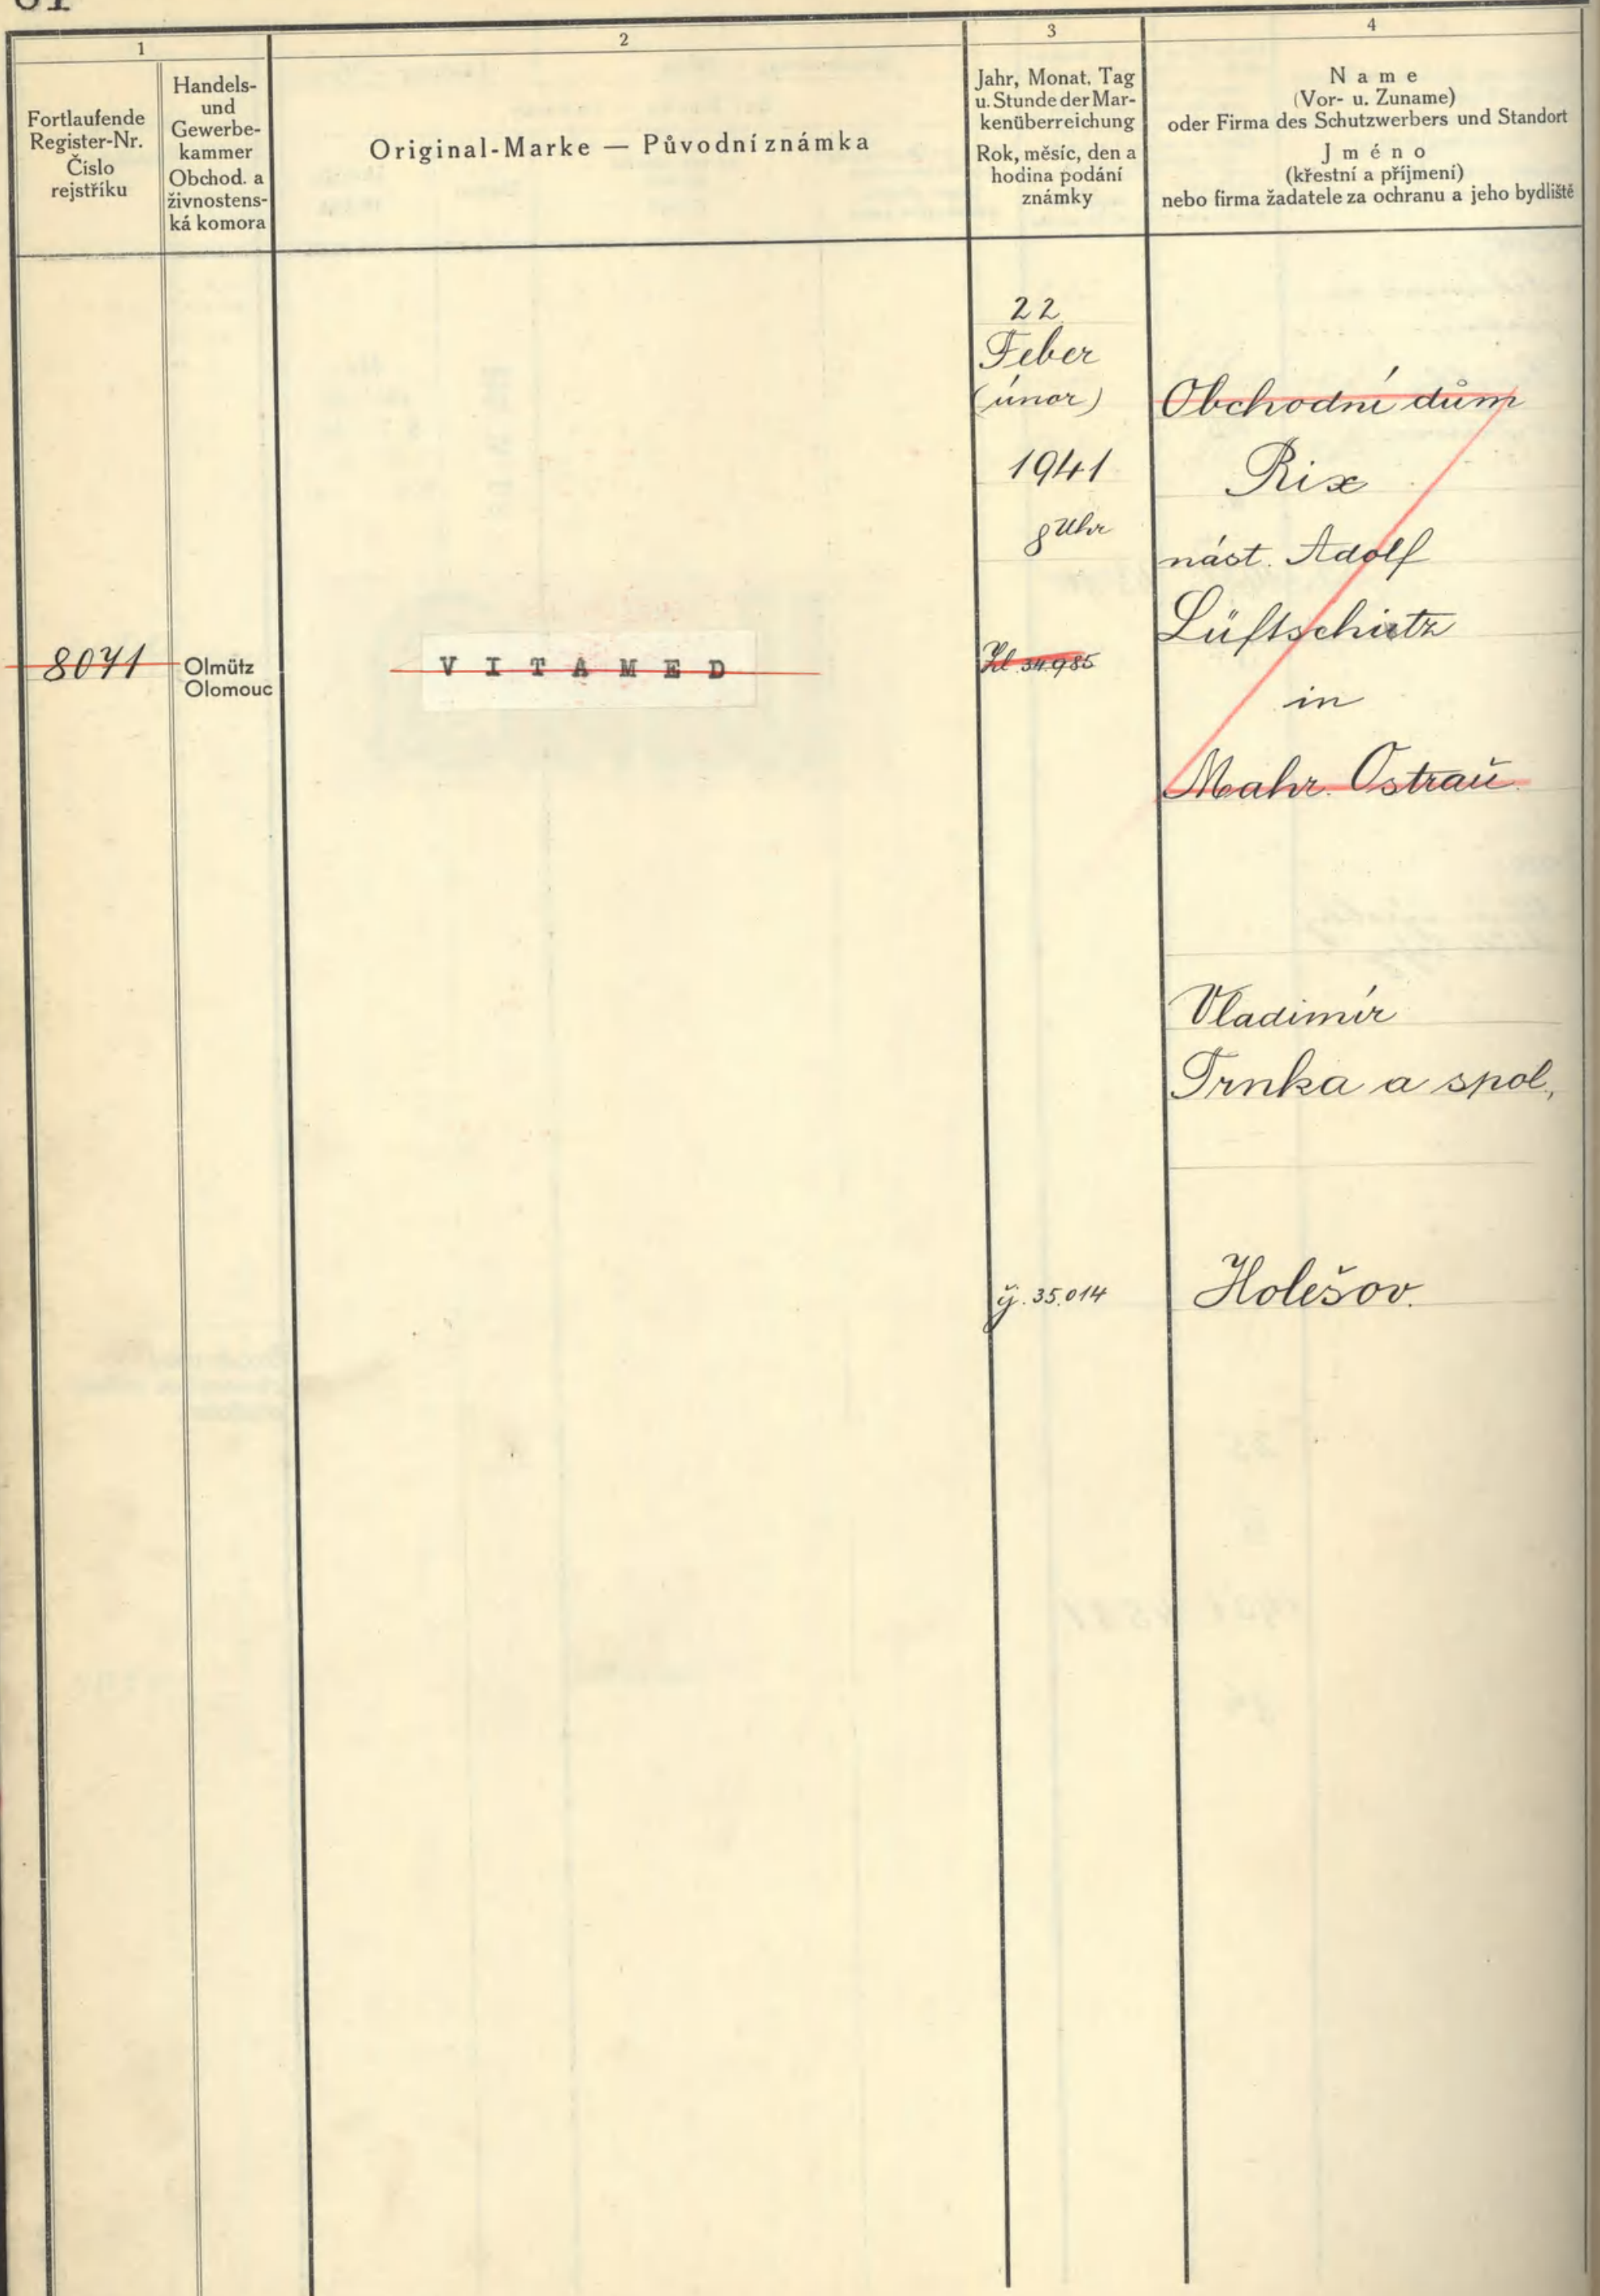 1
2
3
4
Fortlaufende
Register-Nr.
Číslo
rejstříku
Handels-
und
Gewerbe-
kammer
Obchod. a
živnostens-
ká komora
Original-Marke — Původní známka
Jahr, Monat, Tag
u. Stunde der Mar-
kenüberreichung
Rok, měsíc, den a
hodina podání
známky
Name
(Vor- u. Zuname)
oder Firma des Schutzwerbers und Standort
Jméno
(křestní a příjmení)
nebo firma žadatele za ochranu a jeho bydliště
8071
Olmütz
Olomouc
VITAMED
22.
Feber
(únor)
1941
8 Uhr
34.985
Obchodní dům
Rix
nást. Adolf
Lüftschitz
in
Mahr. Ostrau
Vladimír
Trnka a spol.,
čj. 35.014
Holešov.